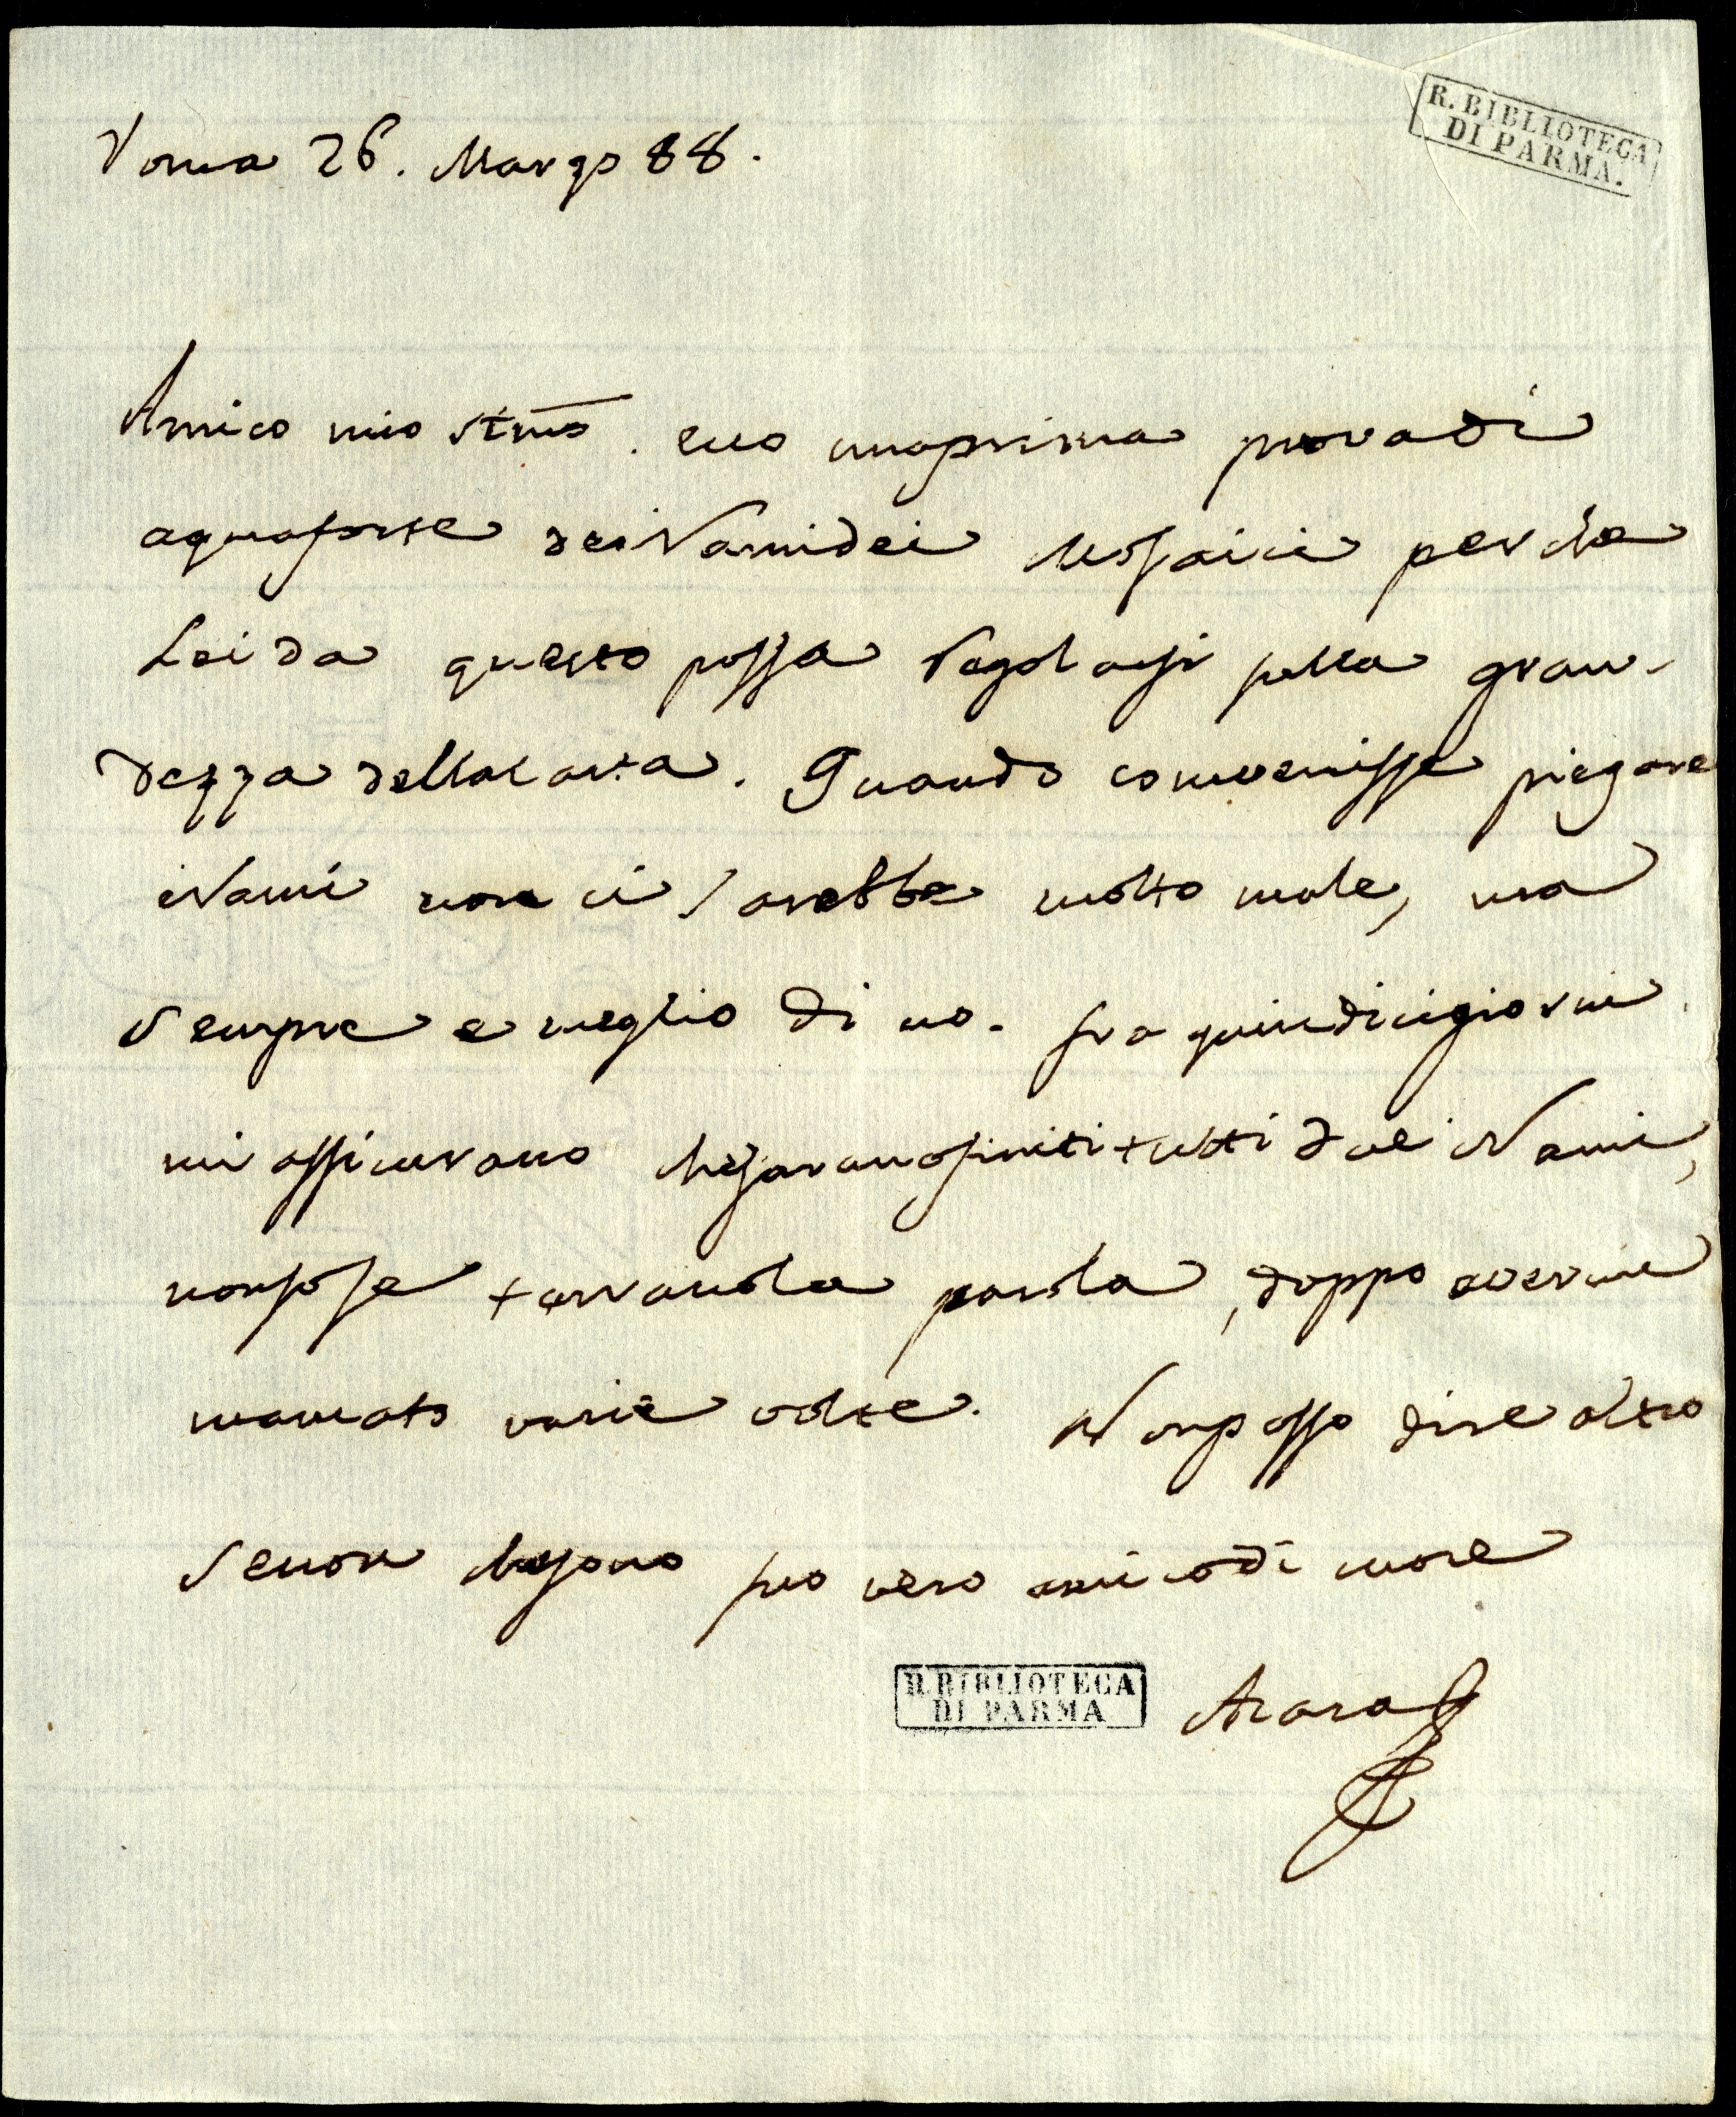 R. BIBLIOTECA
DI PARMA.
Roma 26. Marzo 88.
Amico mio stim̅o. ecco una prima prova di
aquaforte dei Rami dei Mosaici perche
Lei da questo possa regolarsi sulla gran-
dezza della carta. Quando convenisse piegare
i Rami non ci sarebbe molto male, ma
sempre e meglio di no. fra quindici giorni
mi assicurano che saranno finiti tutti due i Rami,
non so se terranno la parola, doppo avermi
mancato varie volte. Non posso dire altro
se non che sono suo vero amico di cuore
R. BIBLIOTECA
DI PARMA
Azara